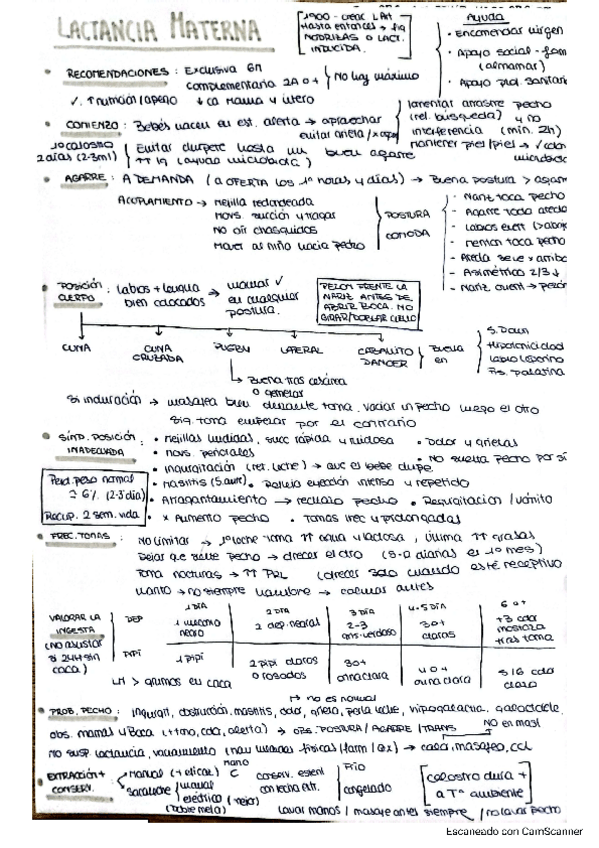 LACTANCIA MATERNA
1900 - crear L. Art
Hasta entonces → fig
NODRIZAS O LACT.
INDUCIDA.
Ayuda
• Encomendar virgen
• Apoyo social - fam
(amamar)
• Apoyo prof. sanitario
• RECOMENDACIONES: Exclusiva 6m
complementaria 2A o + } No hay máximo
✓. ↑ nutrición/apego ↓ca mama y útero
• COMIENZO: Bebés nacen en est. alerta → aprovechar
evitar grieta/
lamentar arrastre pecho
(rel. búsqueda) y no
interferencia (min. 2h)
mantener piel/piel →
1º calostro
2 días (2-3ml)
Evitar chupete hasta un buen agarre
↑↑ Ig (ayuda microbiota)
• AGARRE: A DEMANDA (a OFERTA los 1º horas y días) → Buena postura > agarre
ACOPLAMIENTO → mejilla redondeada
movs. succión y tragar
No oír chasquidos
Mover al niño hacia pecho
POSTURA
COMODA
- Nariz toca pecho
- Agarre toda areola
- Labios evert
- menton toca pecho
- Areola se ve x arriba
- Asimétrico 2/3 ↓
- Nariz → pezón
• POSICIÓN
CUERPO: labios + lengua
bien colocados → mamar ✓
en cualquier
postura.
PEZÓN FRENTE LA
NARIZ ANTES DE
ABRIR BOCA. NO
GIRAR/DOBLAR CUELLO
CUNA
CUNA
CRUZADA
RUGBY
LATERAL
CABALLITO
DANCER
Buena
en
S. Down
Hipotonicidad
Labio leporino
Fis. palatina
↳ Buena tras cesárea
o gemelar
Si induración → masajea bien durante toma. vaciar un pecho luego el otro
Sig. toma empezar por el contrario
• SIND. POSICIÓN
INADECUADA
• mejillas hundidas, succ rápida y ruidosa
• Dolor y grietas
• movs. periorales
• No suelta pecho por sí
• Ingurgitación (ret. leche) → que el bebe chupe
• Mastitis (S. aur) • Reflejo eyección intenso y repetido
• Atragantamiento → rechazo pecho • Regurgitación / vómito
• x Aumento pecho • Tomas frec y prolongadas
Perd. peso normal
≈ 6% (2-3 día)
Recup. 2 sem. vida
• FREC. TOMAS: No limitar → 1º leche toma ↑↑ agua y lactosa, última ↑↑ grasas
Dejar que suelte pecho → ofrecer el otro (8-0 diarias el 1º mes)
Toma nocturas → ↑↑ PRL (ofrecer solo cuando esté receptivo
Llanto → no siempre hambre → calmar antes
VALORAR LA
INGESTA
(No asustar
si 24H sin
caca)
DEP
PIPÍ
1 DIA
1 meconio
negro
1 pipí
2 DIA
2 dep. negra
2 pipí claros
o rosados
3 DIA
2-3
verdoso
3 o +
orina clara
4-5 DIA
3 o +
claras
4 o +
orina clara
6 o +
+3 color
mostaza
tras toma
5 | 6 color
claro
LM > grumos en caca
↦ no es normal
• PROB. PECHO: ingurgit, obstrucción, mastitis, dolor, grieta, perla leche, hipogalactia, galactocele.
obs. mama y Boca → obs. POSTURA / AGARRE / TRANS
NO en mast
NO susp lactancia, vaciamiento → calor, masajeo, ccl
• EXTRACCIÓN +
CONSERV.
manual (+ eficaz)
mano
C
sacaleche
manual
eléctrico (mejor)
(doble mejor)
conserv. esteril
con fecha extr.
Frio
congelado
[calostro dura +
a Tª ambiente]
lavar manos / masaje antes siempre / no lavar pecho
Escaneado con CamScanner